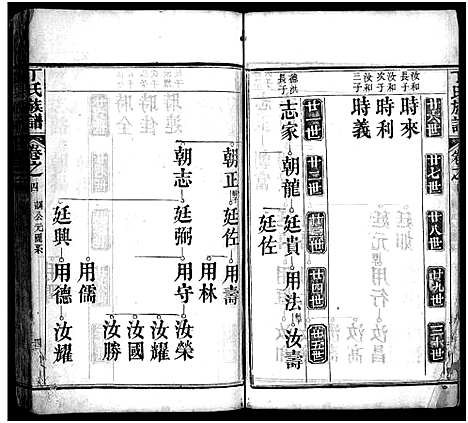 丁氏族譜
卷之
廿六世
廿七世
廿八世
廿九世
三十世
汝和長子
時來
汝和次子
時芳
汝和三子
時義
廿一世
廿二世
廿三世
廿四世
廿五世
德洪長子
志家
朝龍
廷貴
用法
汝壽
廷佐
朝正
廷佐
用壽
用林
朝志
廷弼
用守
汝榮
汝耀
汝國
汝勝
用儒
廷興
用德
汝耀
丁氏族譜
卷之四